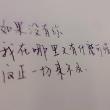 如果没有你
我在哪里又有什么可惜
反正一切来不及